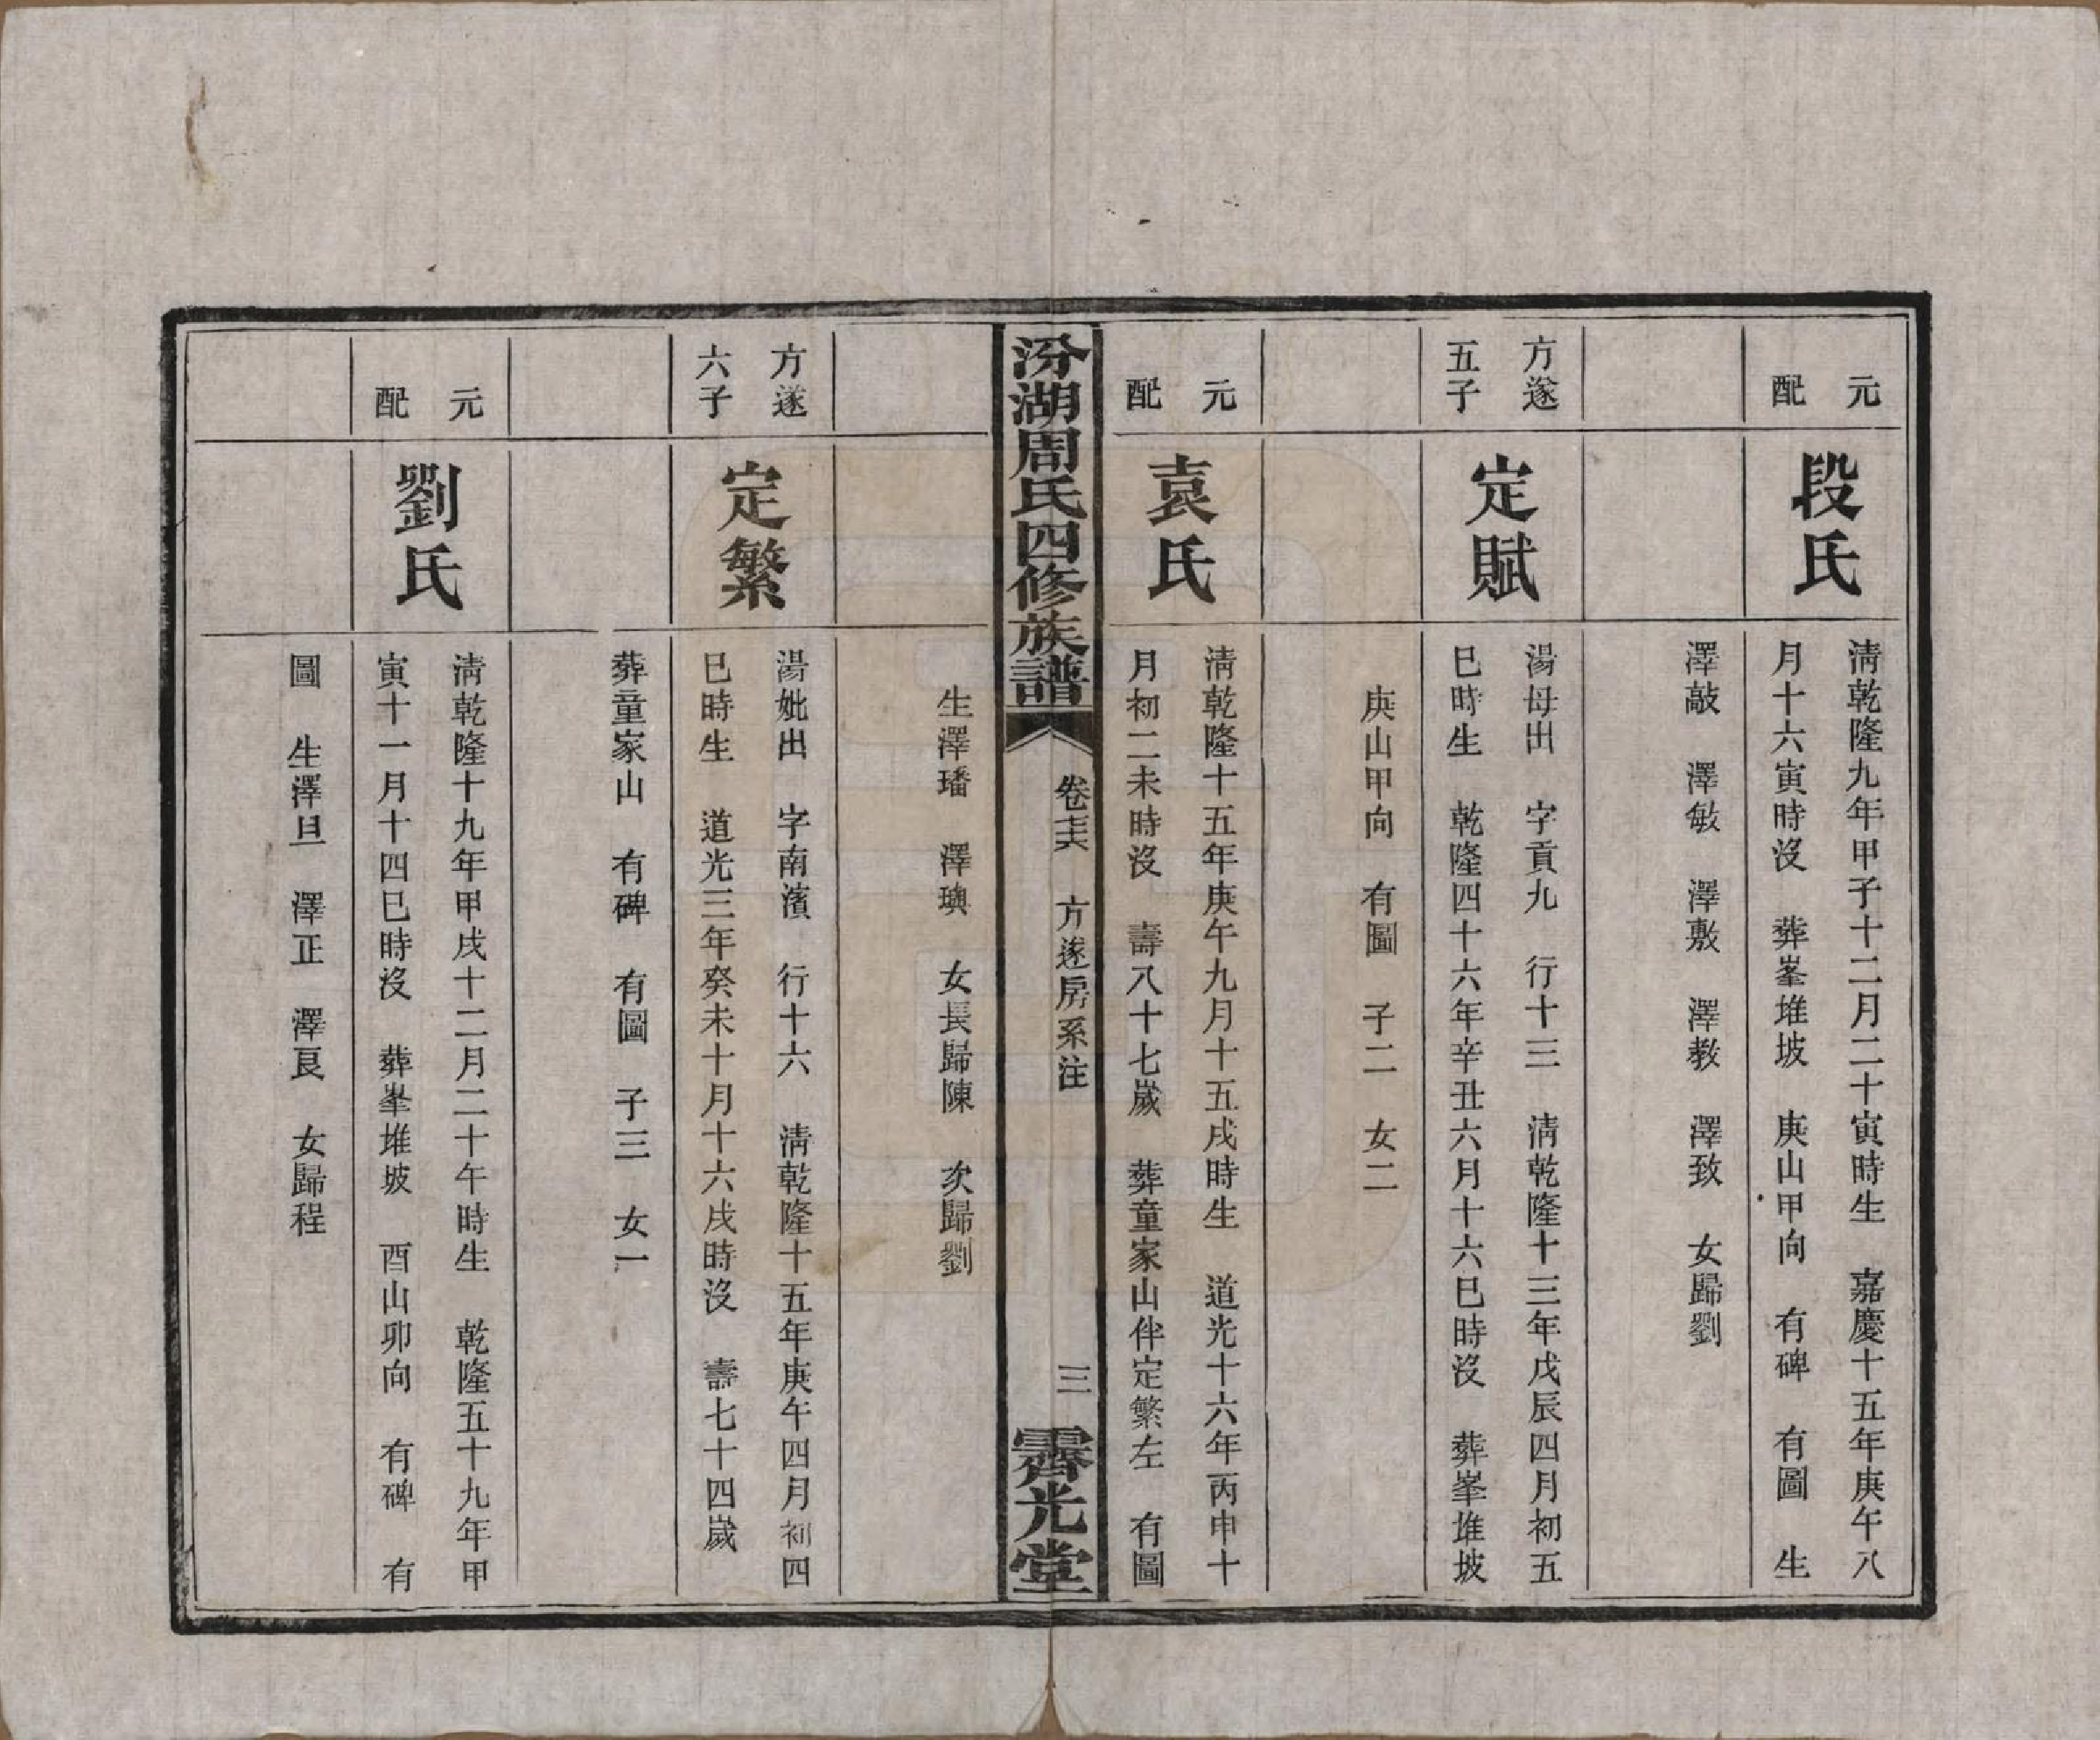 元
配
段氏
清乾隆九年甲子十二月二十寅時生　嘉慶十五年庚午八
月十六寅時沒　葬峯堆坡　庚山甲向　有碑　有圖　生
澤敲　澤敏　澤敷　澤教　澤致　女歸劉
方遂
五子
定賦
湯母出　字貢九　行十三　清乾隆十三年戊辰四月初五
巳時生　乾隆四十六年辛丑六月十六巳時沒　葬峯堆坡
庚山甲向　有圖　子二　女二
元
配
袁氏
清乾隆十五年庚午九月十五戌時生　道光十六年丙申十
月初二未時沒　壽八十七歲　葬童家山伴定繁左　有圖
汾湖周氏四修族譜
卷　方遂房系注
三
霽光堂
生澤璠　澤璵　女長歸陳　次歸劉
方遂
六子
定繁
湯妣出　字南濱　行十六　清乾隆十五年庚午四月初四
巳時生　道光三年癸未十月十六戌時沒　壽七十四歲
葬童家山　有碑　有圖　子三　女一
元
配
劉氏
清乾隆十九年甲戌十二月二十午時生　乾隆五十九年甲
寅十一月十四巳時沒　葬峯堆坡　酉山卯向　有碑　有
圖　生澤旦　澤正　澤良　女歸程